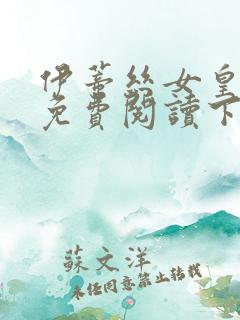 伊蒂丝女皇
免費閱讀下
蘇文洋
未经同意禁止转载